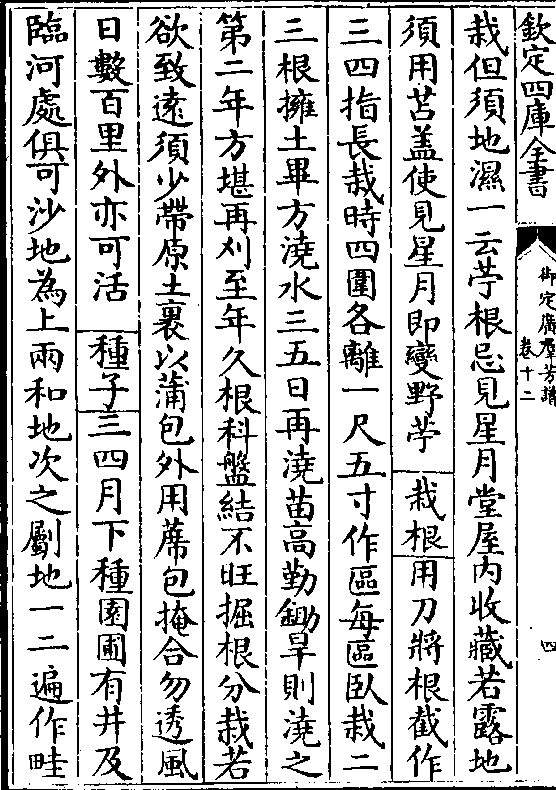 欽定四庫全書
御定廣羣芳譜
卷十二
四
栽但須地濕一云苧根忌見星月堂屋内收藏若露地
須用苫盖使見星月即變野苧 栽根 用刀將根截作
三四指長栽時四圍各離一尺五寸作區每區臥栽二
三根擁土畢方澆水三五日再澆苗高勤鋤旱則澆之
第二年方堪再刈至年久根科盤結不旺掘根分栽若
欲致遠須少帶原土裹以蒲包外用蓆包掩合勿透風
日數百里外亦可活 種子 三四月下種園圃有井及
臨河處俱可沙地為上兩和地次之劚地一二遍作畦